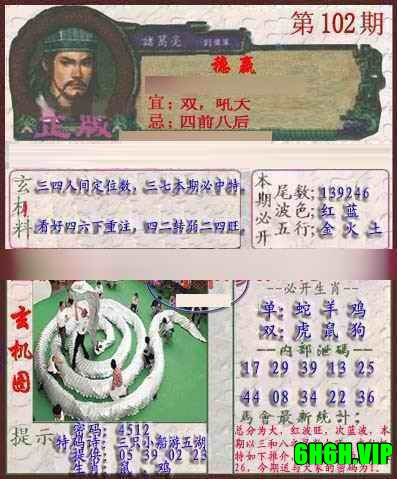 第102期
諸葛亮
穩贏
宜：双，吼天
忌：四前八后
正版
玄机料
三四人间定位数，三七本期必中特。
看好四六下重注，四二转弱二四旺。
本期必开
尾数:139246
波色:红 蓝
五行:金 火 土
玄机图
必开生肖
单:蛇 羊 鸡
双:虎 鼠 狗
内部泄码
17 29 39 13 25
44 08 34 22 36
馬會最新統計:
总分为大，红波旺，次蓝波，本
期以三和八
提示
密码: 4512
特码诗: 三只小船游五湖
提倍: 05 39 02 23
生肖: 鼠 . 鸡
26，今期送与大家的密码为:
6HGH.VIP